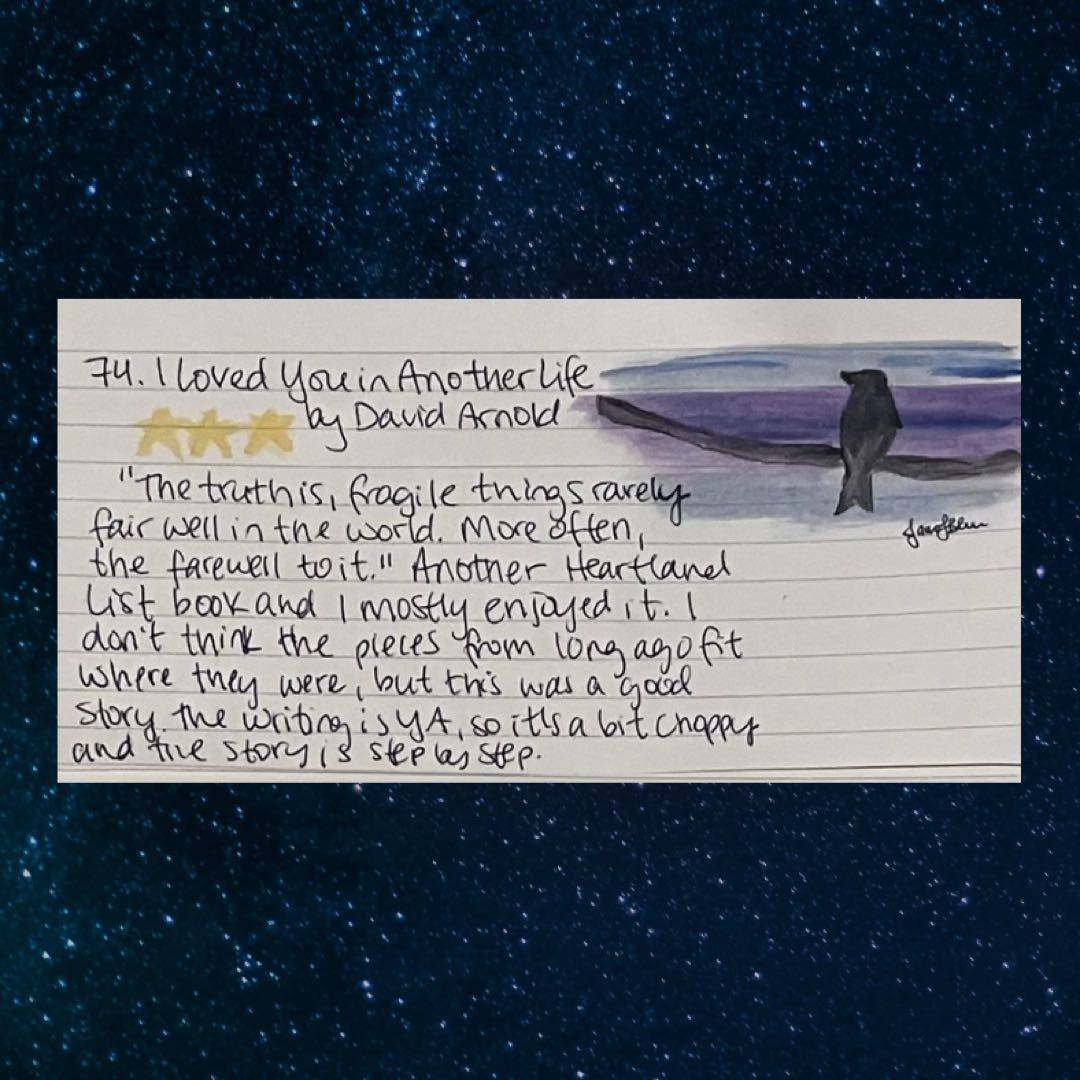 74. I Loved You in Another Life
by David Arnold
"The truth is, fragile things rarely
fair well in the world. More often,
the farewell to it." Another Heartland
List book and I mostly enjoyed it. I
don't think the pieces from long ago fit
where they were, but this was a good
story. The writing is YA, so it's a bit choppy
and the story is step by step.